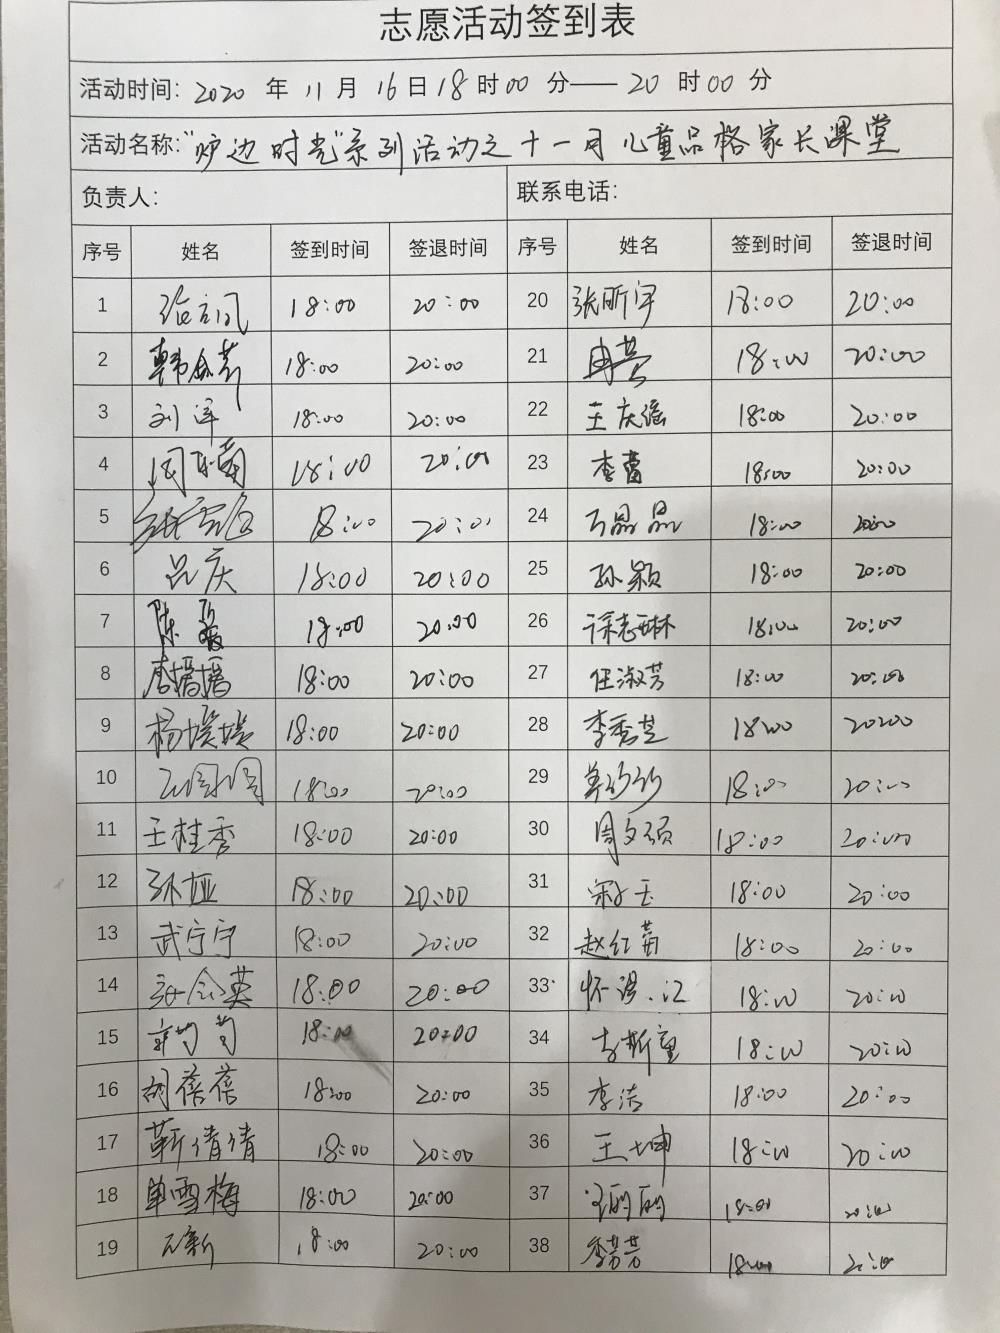 志愿活动签到表
活动时间: 2020 年 11 月 16 日 18 时 00 分——20 时 00 分
活动名称: "炉边时光"系列活动之十一月儿童品格家长课堂
负责人: 联系电话:
序号 姓名 签到时间 签退时间 序号 姓名 签到时间 签退时间
1 18:00 20:00 20 张昕宇 18:00 20:00
2 18:00 20:00 21 冉营 18:00 20:00
3 刘洋 18:00 20:00 22 王庆谣 18:00 20:00
4 18:00 20:00 23 李蕾 18:00 20:00
5 18:00 20:00 24 石晶晶 18:00 20:00
6 吕庆 18:00 20:00 25 孙颖 18:00 20:00
7 陈 18:00 20:00 26 徐志琳 18:00 20:00
8 唐播播 18:00 20:00 27 任淑芳 18:00 20:00
9 杨媛媛 18:00 20:00 28 李秀芝 18:00 20:00
10 18:00 20:00 29 18:00 20:00
11 王桂秀 18:00 20:00 30 周文硕 18:00 20:00
12 孙娅 18:00 20:00 31 宋玉 18:00 20:00
13 武宁宁 18:00 20:00 32 赵红苗 18:00 20:00
14 张会英 18:00 20:00 33 18:00 20:00
15 18:00 20:00 34 李斯童 18:00 20:00
16 胡蓓蓓 18:00 20:00 35 李洁 18:00 20:00
17 靳倩倩 18:00 20:00 36 王坤 18:00 20:00
18 单雪梅 18:00 20:00 37 18:00 20:00
19 18:00 20:00 38 季芳芳 18:00 20:00